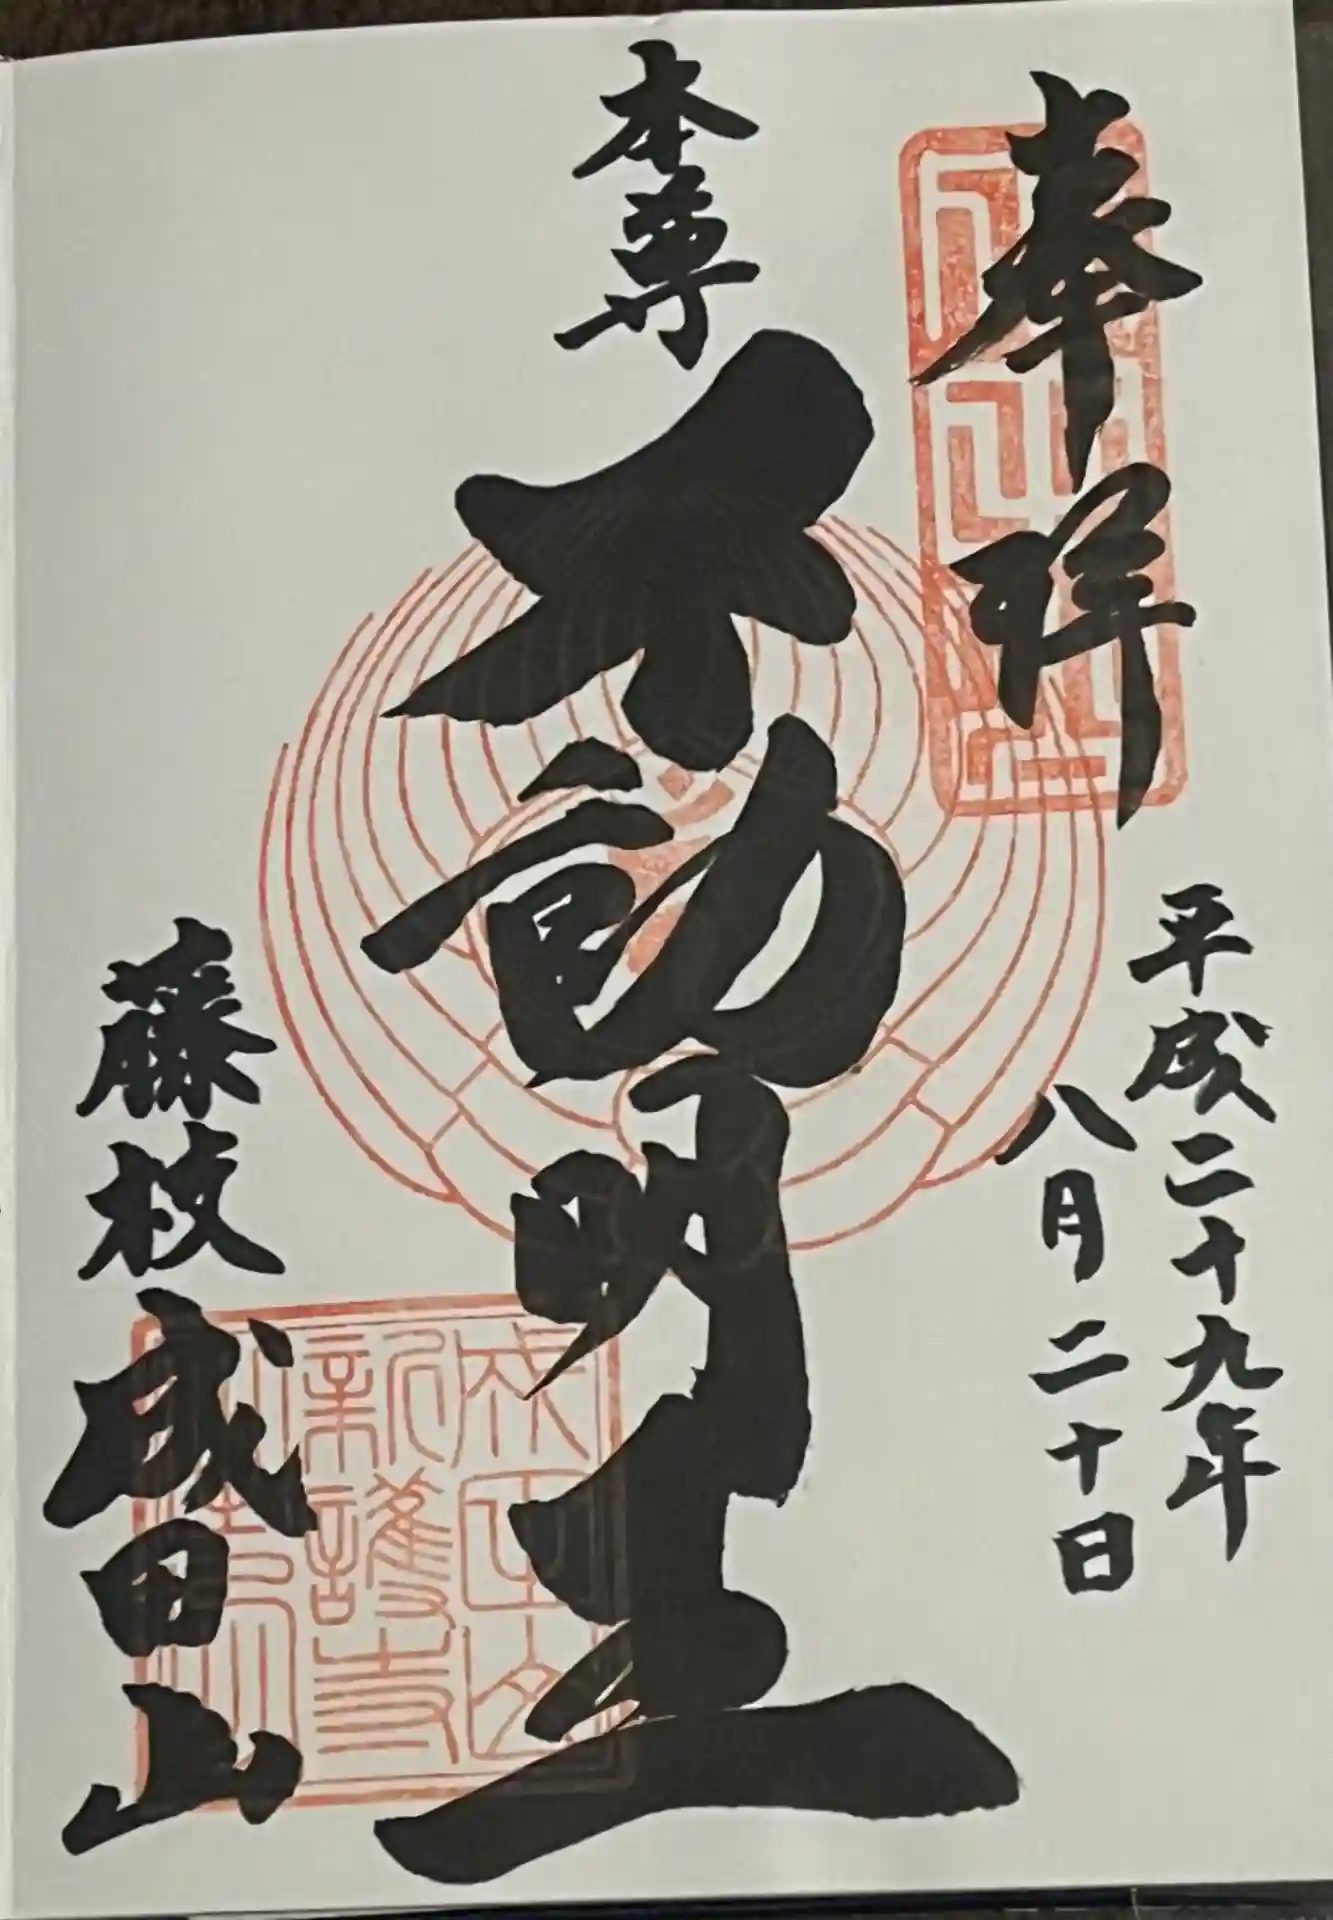 奉拝
平成二十九年
八月二十日
本尊
不動明王
藤枝
成田山
成田山
新護寺